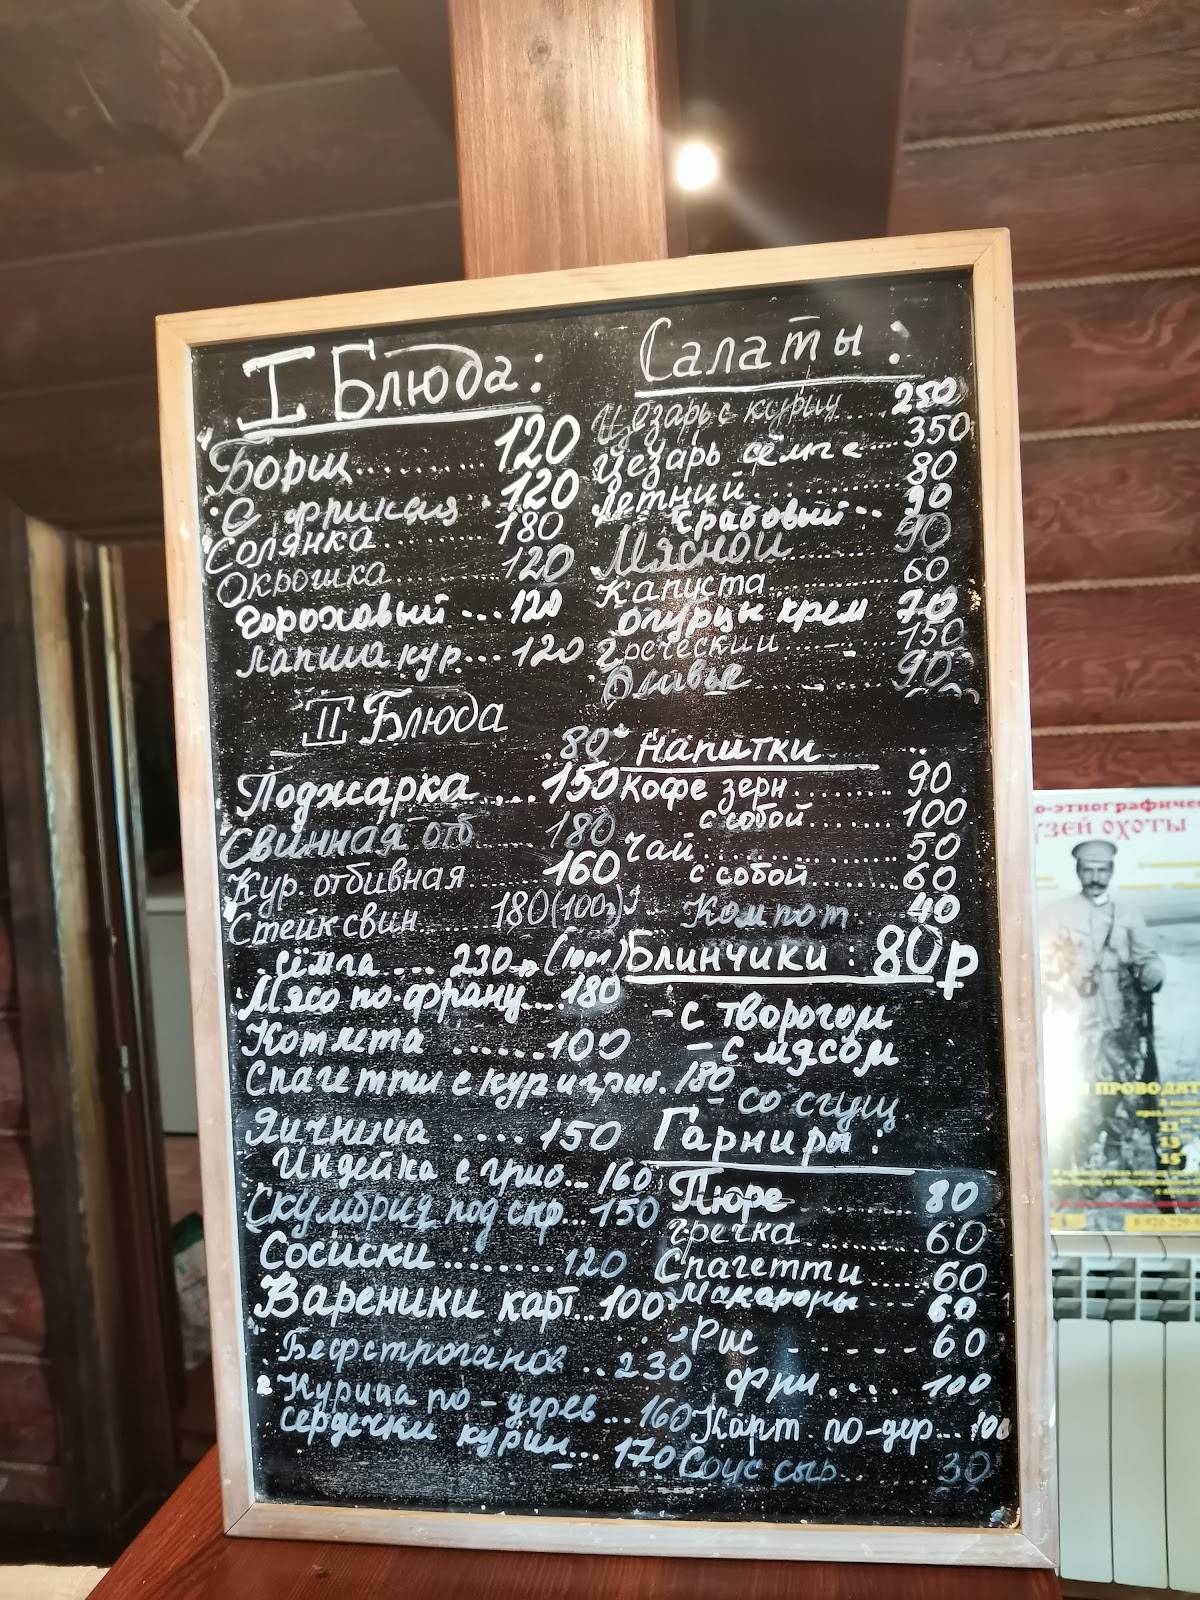 I Блюда:
Борщ......... 120
С фрикад. 120
Солянка......... 180
Окрошка......... 120
Гороховый... 120
Лапша кур... 120
II Блюда
80
Поджарка.... 150
Свинная отб... 180
Кур. отбивная..... 160
Стейк свин..... 180(100г)
Сёмга.... 230р(100г)
Мясо по-францу... 180
Котлета ...... 100
Спагетти с кур и гриб. 180
Яичница .... 150
Индейка с гриб... 160
Скумбрия под снр... 150
Сосиски........ 120
Вареники карт... 100
Бефстроганов .. 230
Курица по-дерев... 160
Сердечки курин... 170
Салаты:
Цезарь с куриц.... 250
Цезарь сёмга 350
Летний......... 80
Крабовый... 90
Мясной 90
Капуста......... 60
Огурцы крем 70
Греческий...... 150
Оливье...... 90
Напитки
Кофе зерн........ 90
с собой....... 100
Чай............ 50
с собой....... 60
Компот... 40
Блинчики: 80р
- с творогом
- с мясом
со сгущ
Гарниры:
Пюре ........ 80
Гречка........ 60
Спагетти..... 60
Макароны.... 60
Рис ...... 60
Фри.... 100
Карт. по-дер... 100
Соус сыр..... 30
о-этнографичес
УЗЕЙ ОХОТЫ
ПРОВОДЯТ